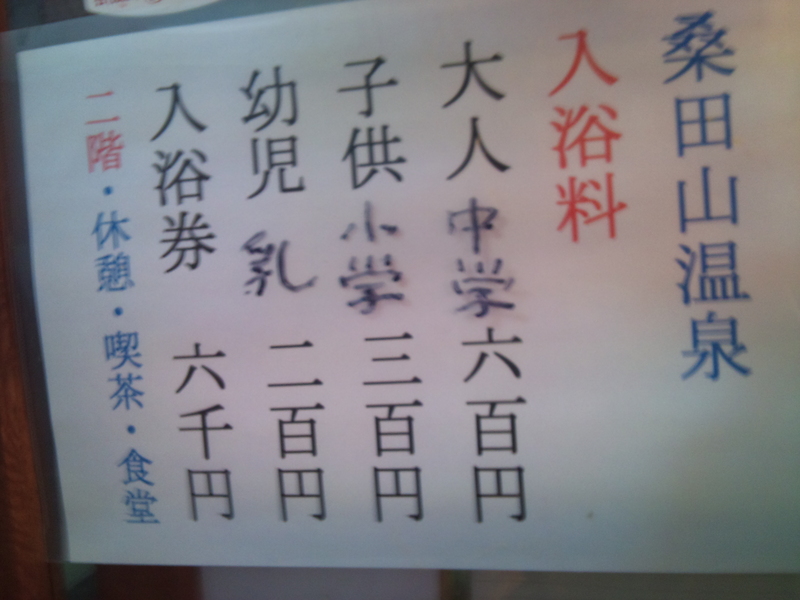 桑田山温泉
入浴料
大人 中学 六百円
子供 小学 三百円
幼児 乳 二百円
入浴券 六千円
二階・休憩・喫茶・食堂